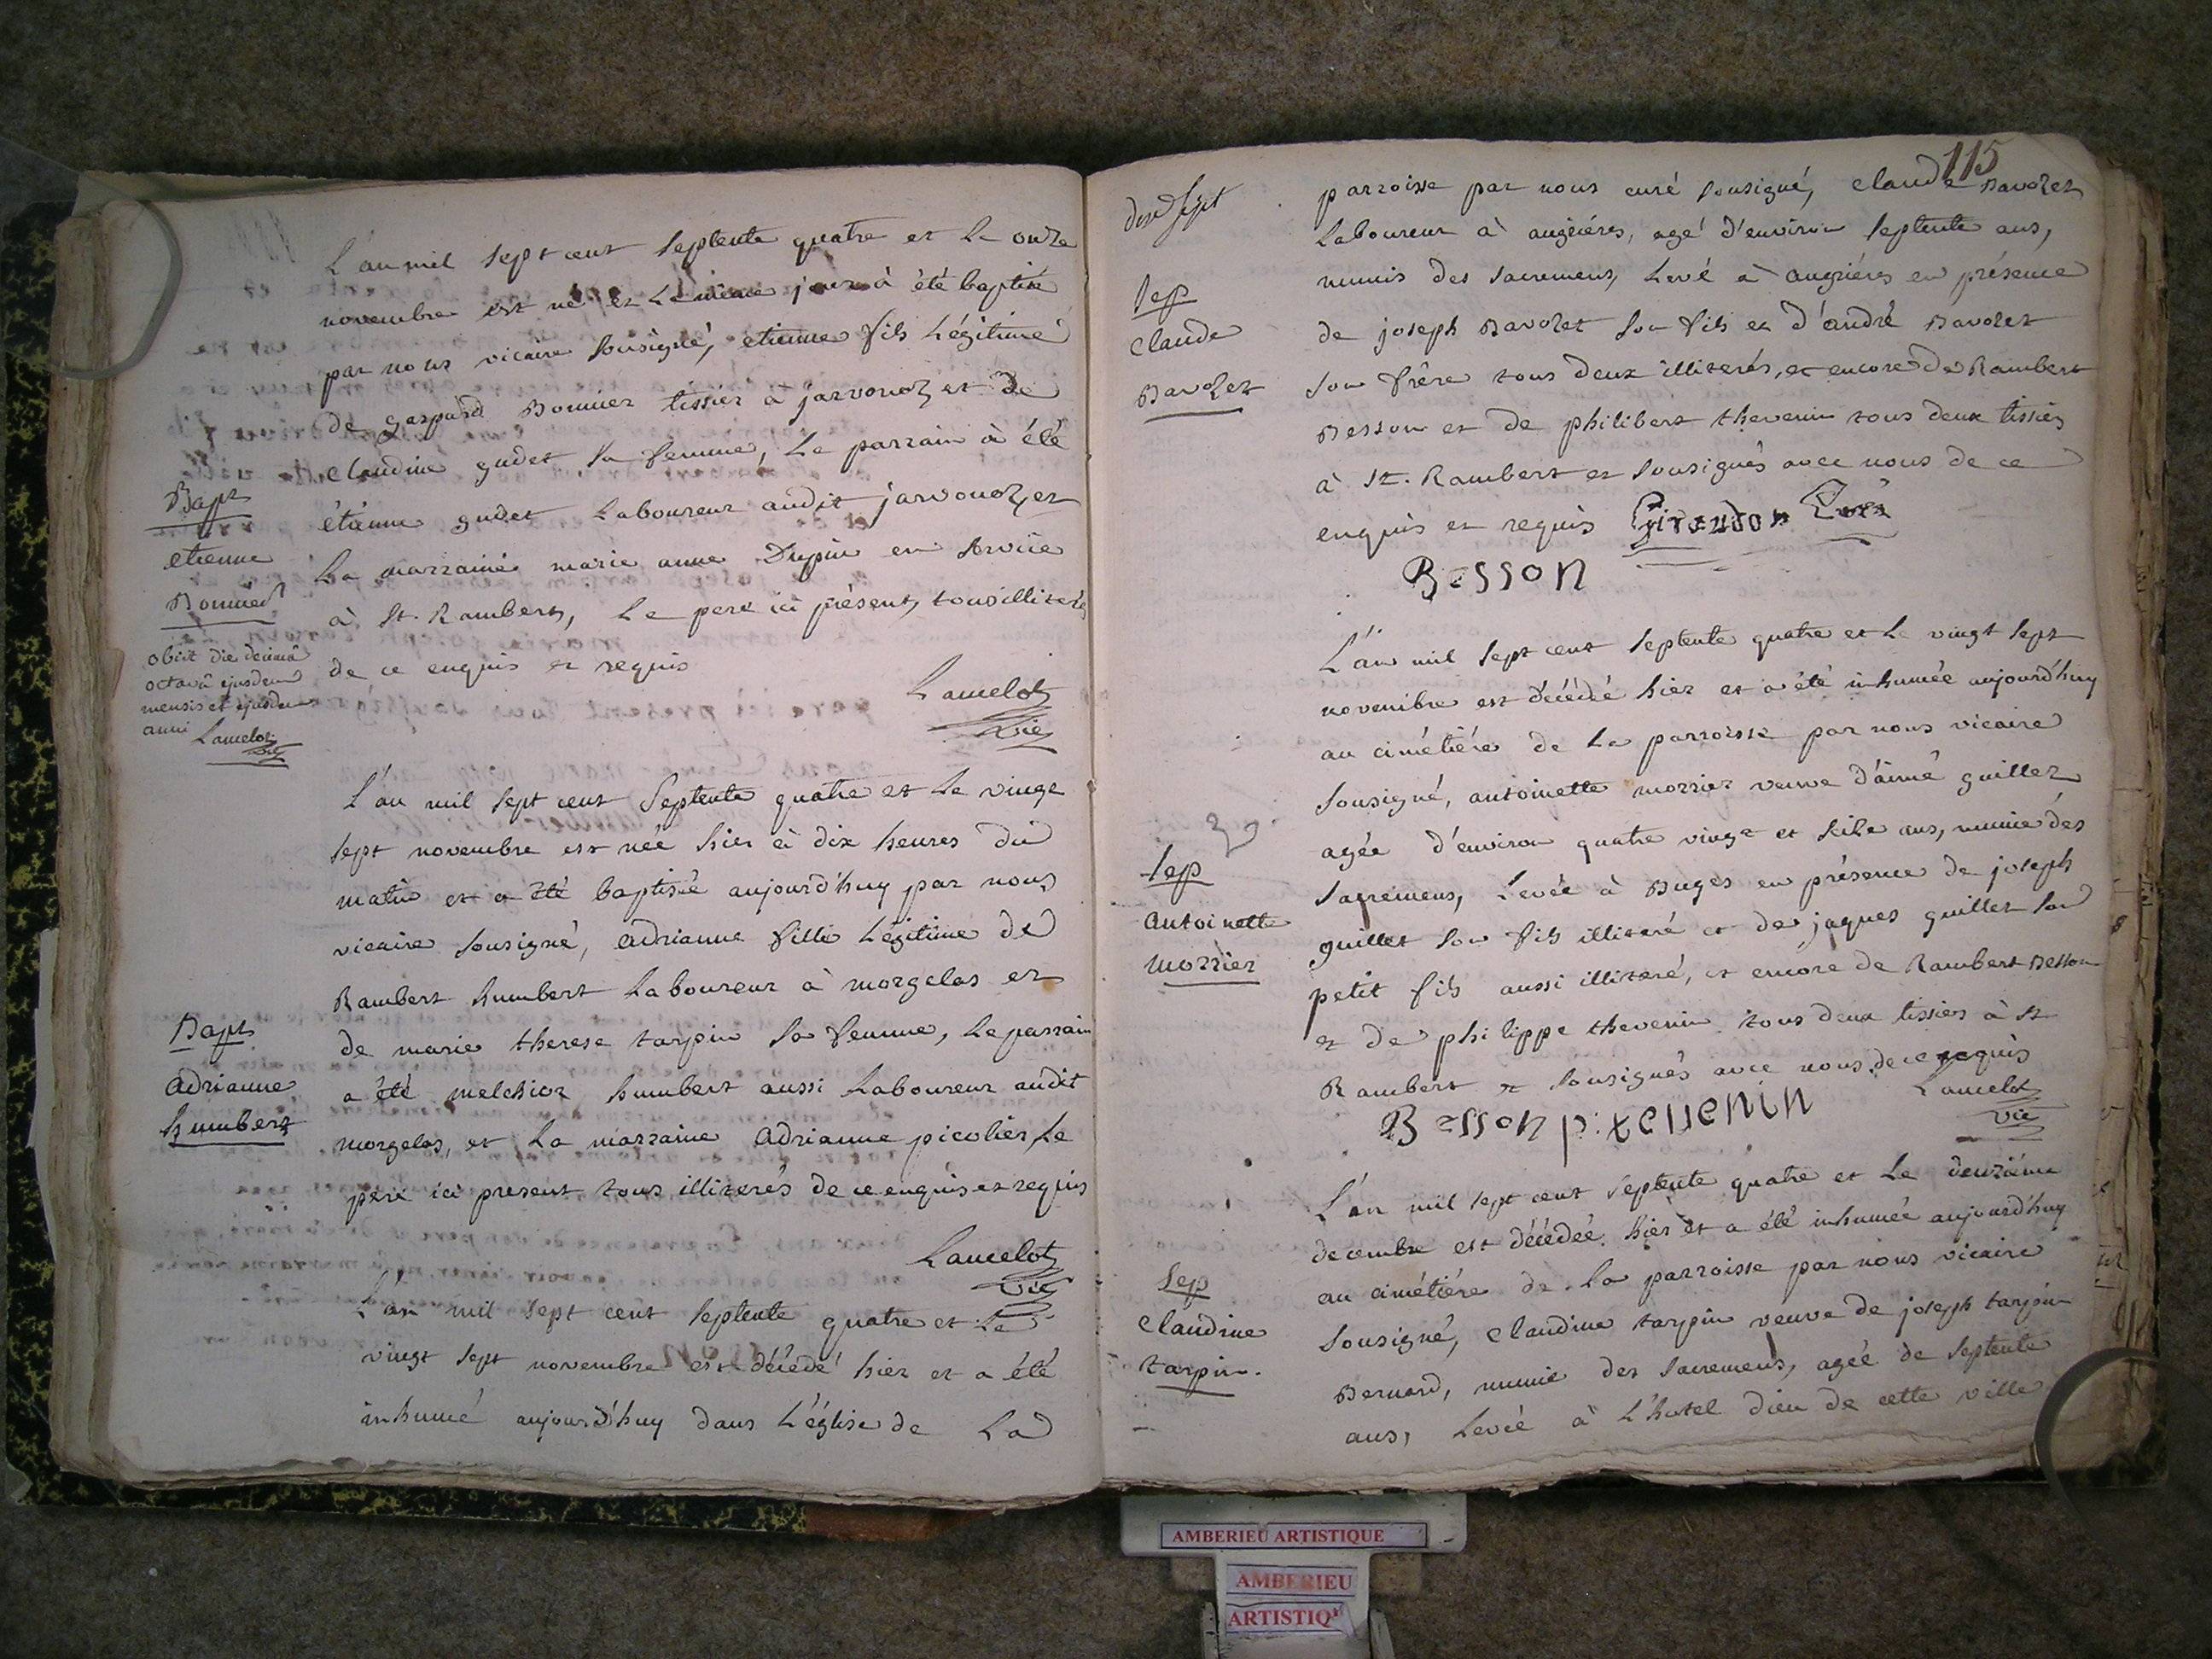 L'an mil sept cent septente quatre et le onze
novembre est né et le même jour à été baptisé
par nous vicaire sousigné, etienne fils légitime
de gaspard Bonnier tissier à javornoz et de
claudine gudet sa femme, le parrain à été
étienne gudet laboureur audit jarvonoz et
la marraine marie anne Dupin en service
à St. Rambert, le pere ici présent, tous illiterés
de ce enquis et requis
Lancelot
vic
Bapt
etienne
Bonnier
obiit die decimâ
octavâ ejusdem
mensis et ejusdem
anni Lancelot
vic
L'an mil sept cent septente quatre et le vingt
sept novembre est née hier à dix heures du
matin et a été baptisée aujourd'huy par nous
vicaire sousigné, adrianne fille légitime de
Rambert humbert laboureur à morgelas et
de marie therese tarpin sa femme, le parrain
a été melchior humbert aussi laboureur audit
morgelas, et la marraine adrianne picolier, le
pere ici present tous illiterés de ce enquis et requis
Lancelot
vic
Bapt
adrianne
humbert
L'an mil sept cent septente quatre et le
vingt sept novembre est décédé hier et a été
inhumé aujourd'huy dans l'église de la
115
parroisse par nous curé sousigné, claude Bavozet
laboureur à angrières, agé d'environ septente ans,
munis des sacremens, levé à angrières en présence
de joseph Bavozet son fils et d'andré Bavozet
son frère tous deux illiterés, et encore de Rambert
Besson et de philibert thevenin tous deux tissiers
à St. Rambert et sousignés avec nous de ce
enquis et requis Giraudon Curé
Besson
sep
claude
Bavozet
L'an mil sept cent septente quatre et le vingt sept
novembre est décédé hier et a été inhumée aujourd'huy
au cimétière de la parroisse par nous vicaire
sousigné, antoinette morrier veuve d'aimé guillet
agée d'environ quatre vingt et seize ans, munie des
sacremens, levée à Buges en présence de joseph
guillet son fils illiteré et de jaques guillet son
petit fils aussi illiteré, et encore de Rambert Besson
et de philippe thevenin tous deux tissiers à St
Rambert et sousignés avec nous de ce requis
Besson p: tevenin Lancelot
vic
sep
antoinette
morrier
L'an mil sept cent septente quatre et le deuzième
decembre est décédée hier et a été inhumée aujourd'huy
au cimétière de la parroisse par nous vicaire
sousigné, claudine tarpin veuve de joseph tarpin
Bernard, munie des sacremens, agée de septente
ans, levée à l'hotel dieu de cette ville
sep
claudine
tarpin.
AMBERIEU ARTISTIQUE
AMBERIEU
ARTISTIQ